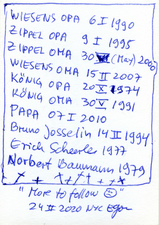 WIESENS OPA 6 I 1990
ZIPPEL OPA 9 I 1995
ZIPPEL OMA 30 (May) 2000
WIESENS OMA 15 II 2007
KÖNIG OPA 20 X 1974
KÖNIG OMA 30 V 1991
PAPA 07 I 2010
Bruno Josselin 14 II 1994
Erich Scheerle 1977
Norbert Baumann 1979
"More to follow ☺"
24 II 2020 NYC